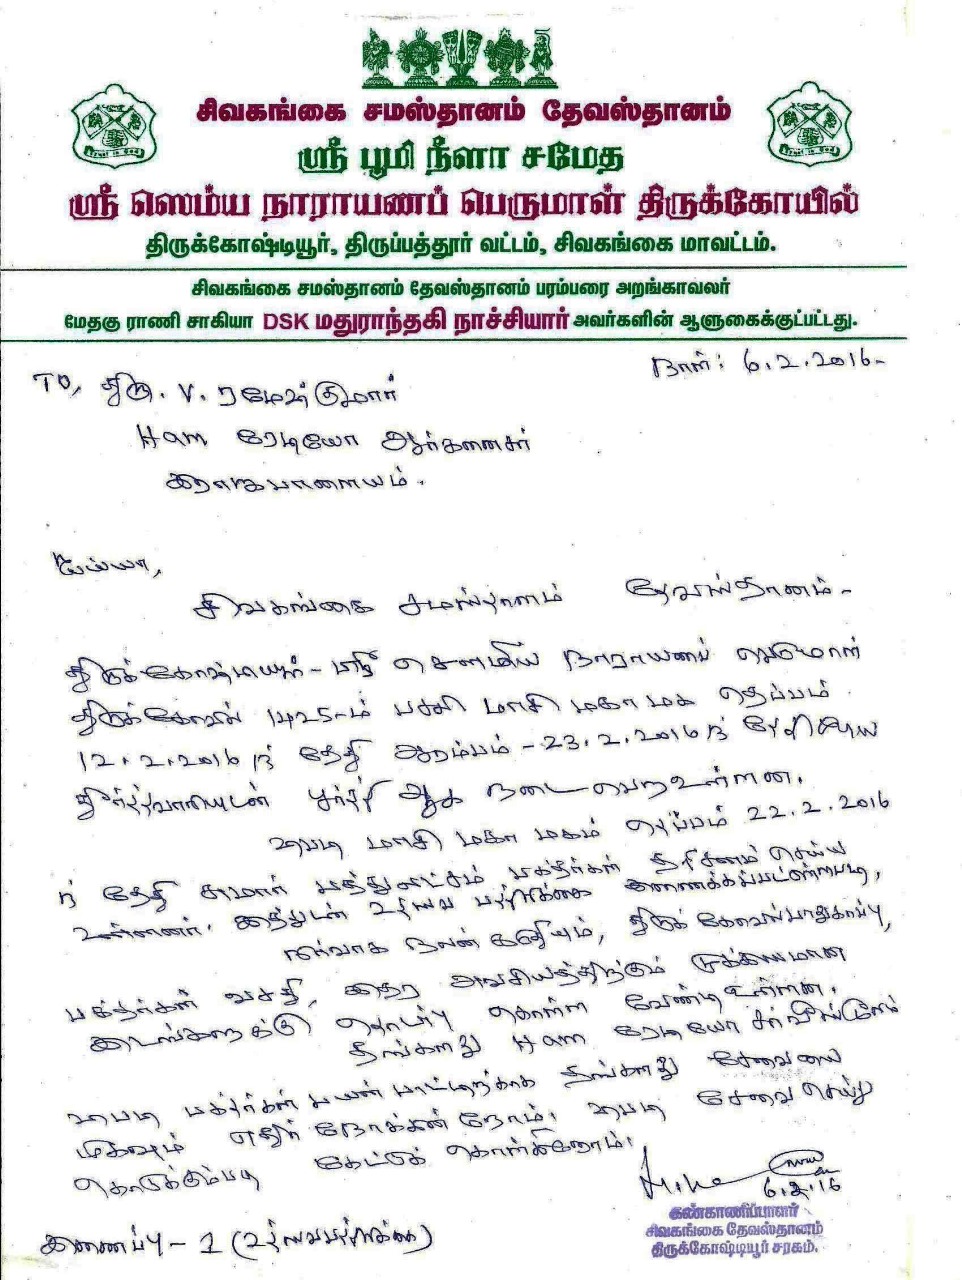 சிவகங்கை சமஸ்தானம் தேவஸ்தானம்
ஸ்ரீ பூமி நீளா சமேத
ஸ்ரீ ஸௌம்ய நாராயணப் பெருமாள் திருக்கோயில்
திருக்கோஷ்டியூர், திருப்பத்தூர் வட்டம், சிவகங்கை மாவட்டம்.
சிவகங்கை சமஸ்தானம் தேவஸ்தானம் பரம்பரை அறங்காவலர்
மேதகு ராணி சாகியா DSK மதுராந்தகி நாச்சியார் அவர்களின் ஆளுகைக்குட்பட்டது.
நாள்: 6.2.2016-
TO, திரு. V. ரமேஷ்குமார்
Ham ரேடியோ ஆர்கனைசர்
ஐயா,
சிவகங்கை சமஸ்தானம் தேவஸ்தானம் -
திருக்கோஷ்டியூர் - ஸ்ரீ சௌமிய நாராயணப் பெருமாள்
திருக்கோவில் 1425-ம் பசலி மாசி மகா மக தெப்பம்
12.2.2016 ந் தேதி ஆரம்பம் - 23.2.2016 ந் தேதிய
தீர்த்தவாரியுடன் பூர்த்தி ஆக நடைபெறஉள்ளன.
படி மாசி மகா மகம் தெப்பம் 22.2.2016
ந் தேதி சுமார் பத்துலட்சம் பக்தர்கள் தரிசனம் செய்ய
உள்ளனர். இத்துடன் உற்சவ பத்திரிக்கை இணைக்கப்பட்டுள்ளபடி,
நிர்வாக நலன் கருதியும், திருக் கோவில்பாதுகாப்பு,
பக்தர்கள் வசதி, இதர அவசியத்திற்கும் முக்கியமான
இடங்களுக்கு தொடர்பு கொள்ள வேண்டிஉள்ளன.
தங்களது Ham ரேடியோ சர்வீஸ்மூலம்
படி பக்தர்கள் பயன் பாட்டிற்காக தங்களது சேவையை
மிகவும் எதிர் நோக்கின்றோம். படி சேவை செய்து
கொடுக்கும்படி கேட்டுக் கொள்கிறோம்.
6.2.16
கண்காணிப்பாளர்
சிவகங்கை தேவஸ்தானம்
திருக்கோஷ்டியூர் சரகம்.
இணைப்பு - 1 (உற்சவபத்திரிக்கை)